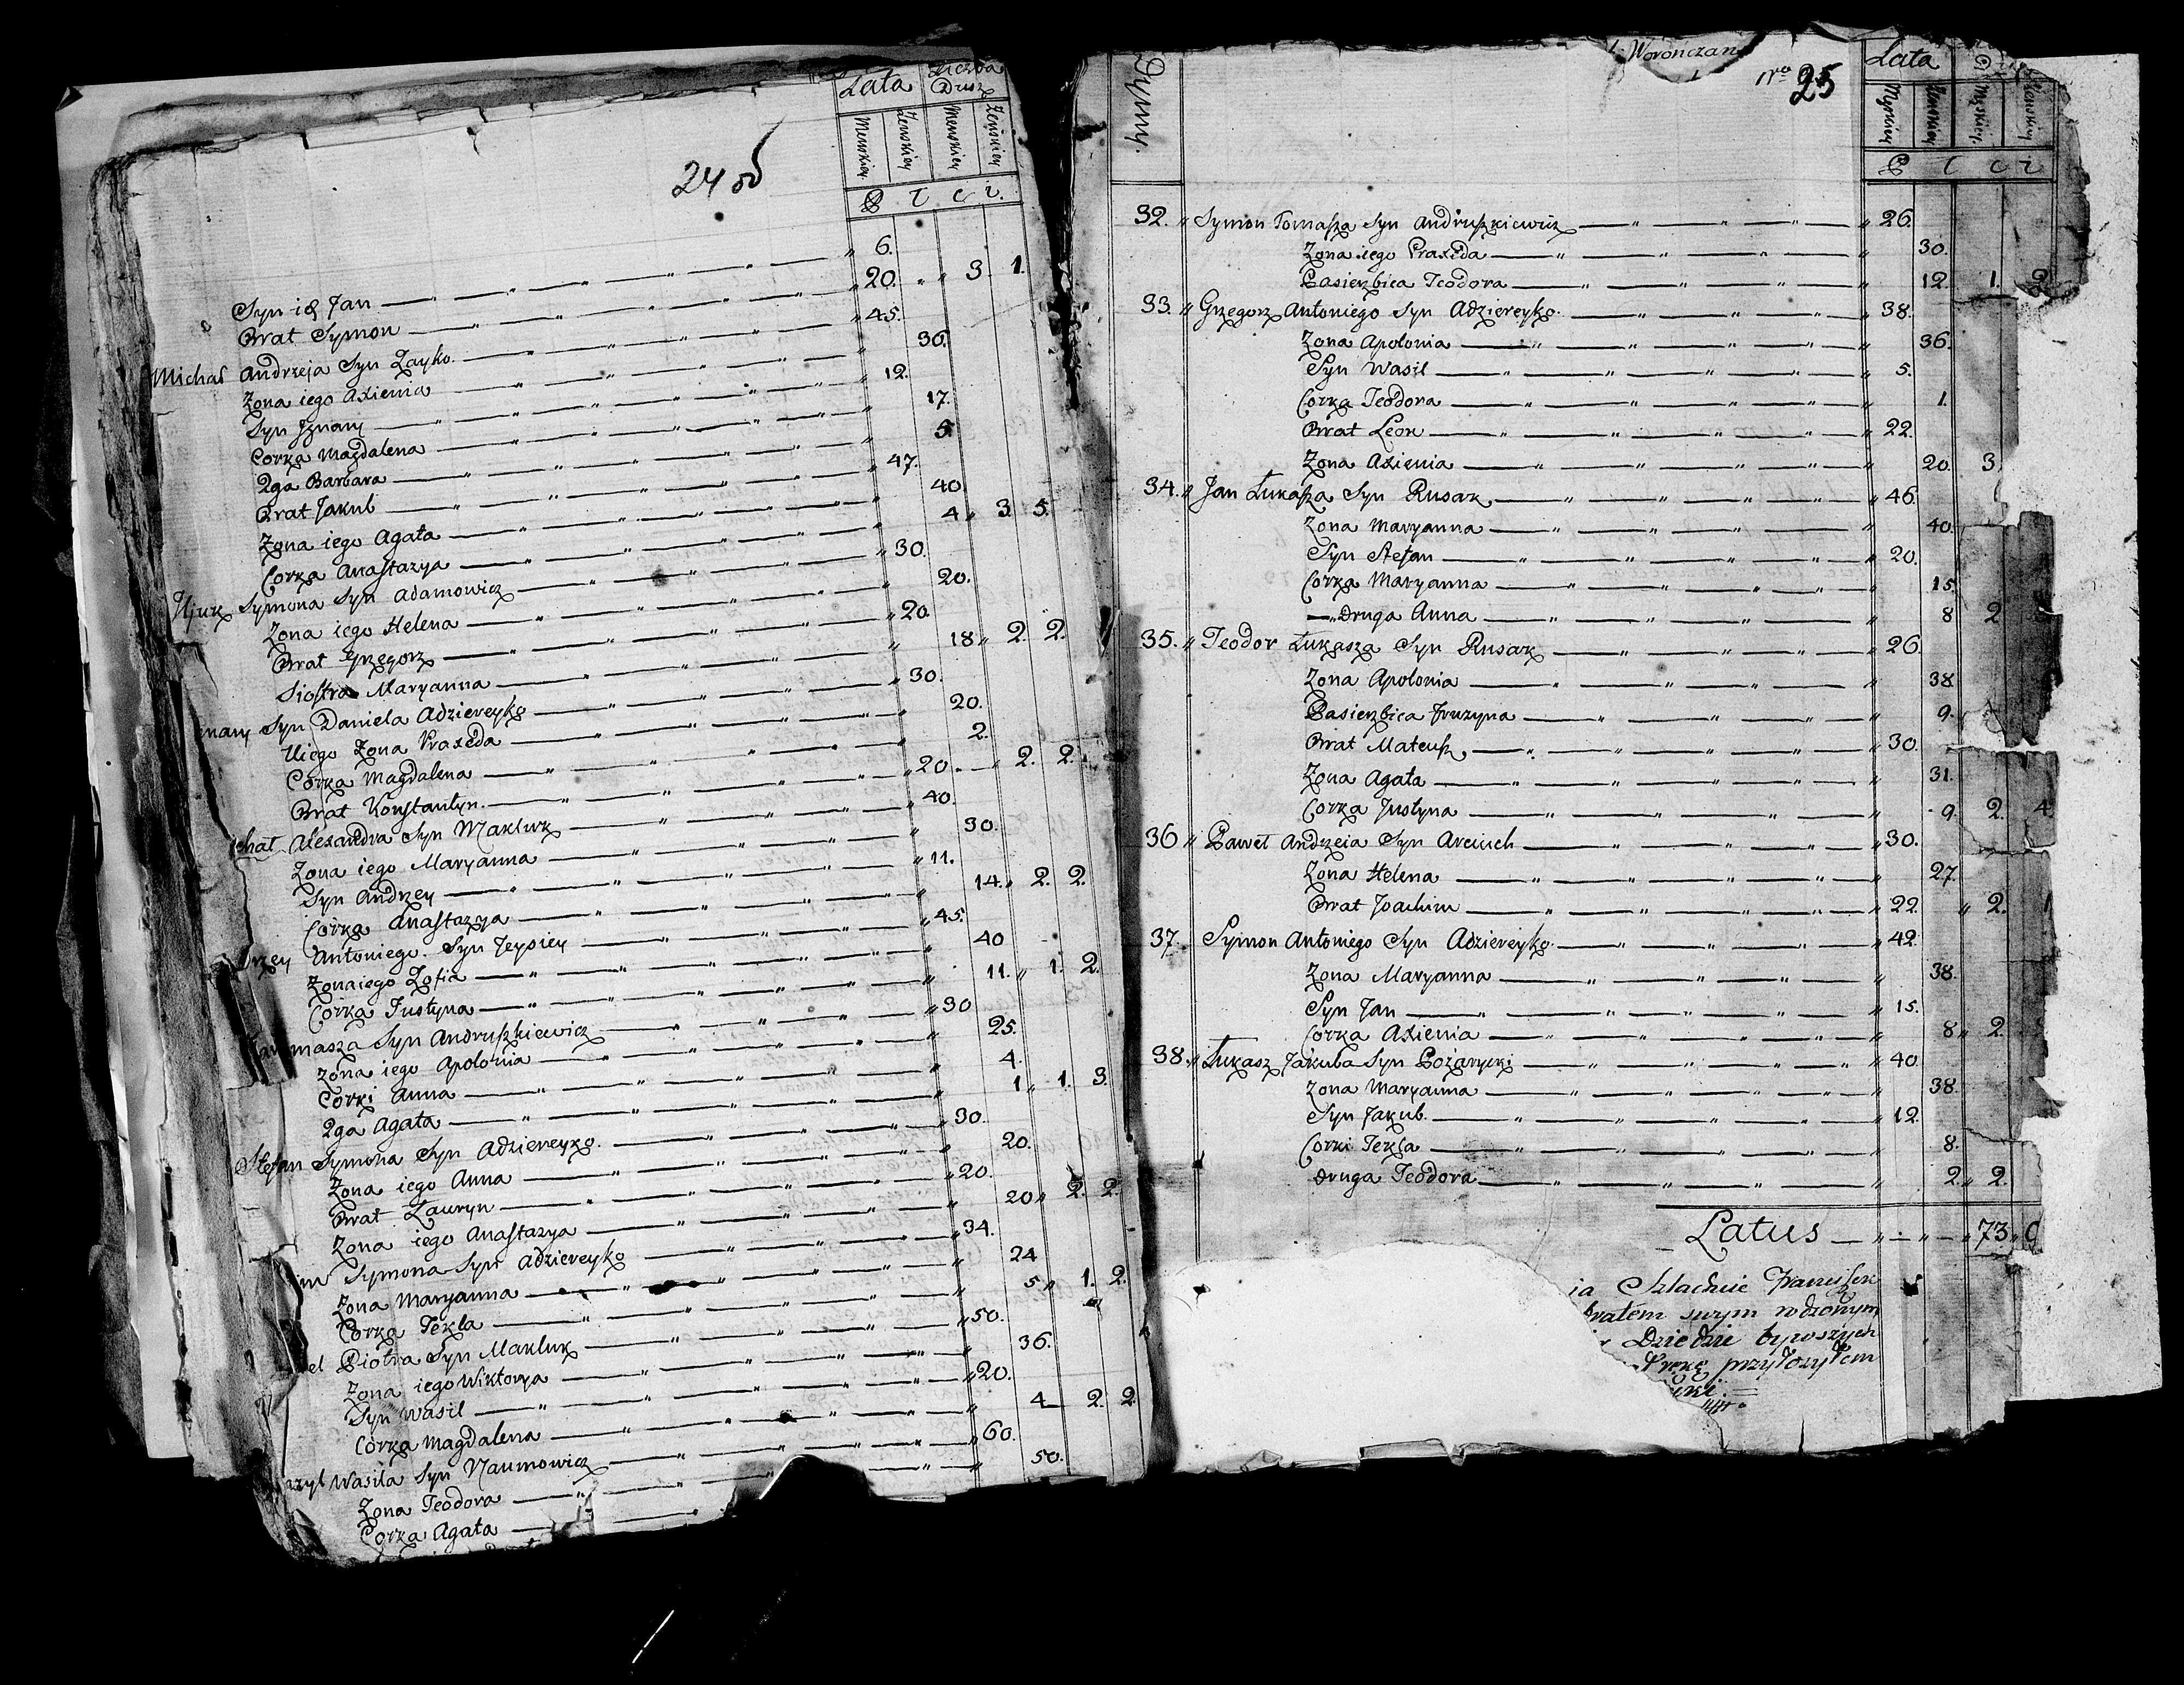 24 об
Lata Liczba Dusz
Męzskiey Zenskiey Męzskiey Zenskiey
P ł c i.
Syn ich Jan — 6.
Brat Symon — 20. 3 1.
Michał Andrzeja Syn Zayko — 45.
Zona iego Axienia — 36.
Syn Jgnacy — 12.
Corka Magdalena — 17.
2ga Barbara — 5.
Brat Jakub — 47.
Zona iego Agata — 40.
Corka Anastazya — 4. 3. 5.
Symona Syn Adamowicz — 30.
Zona iego Helena — 20.
Brat Grzegorz — 20.
Siostra Maryanna — 18 2. 2.
Syn Daniela Adziereyko — 30.
Uiego Zona Praxeda — 20.
Corka Magdalena — 2.
Brat Konstantyn — 20. 2. 2.
chał Alexandra Syn Makluk — 40.
Zona iego Maryanna — 30.
Syn Andrzey — 11.
Córka Anastazya — 14. 2. 2.
drzey Antoniego Syn Jeysiey — 45.
Zona iego Zofia — 40
Córka Justyna — 11. 1. 2.
masza Syn Andruszkiewicz — 30
Zona iego Apolonia — 25.
Córki Anna — 4.
2ga Agata — 1 1. 3.
Stefan Symona Syn Adziereyko — 30.
Zona iego Anna — 20.
Brat Ławryn — 20.
Zona iego Anastazya — 20 2. 2.
Symona Syn Adziereyko — 34.
Zona Maryanna — 24
Corka Tekla — 5 1. 2.
el Piotra Syn Makluk — 50.
Zona iego Wiktorya — 36.
Syn Wasil — 20.
Córka Magdalena — 4 2. 2.
zyl Wasila Syn Naumowicz — 60.
Zona Teodora — 50.
Corka Agata —
Woronczan
25
Numy.
Lata
Męzskiey Zenskiey Męzskiey Zenskiey
P ł c i
32. Symon Tomasza Syn Andruszkiewicz — 26.
Zona iego Praxeda — 30.
Pasierzbica Teodora — 12. 1. 2
33. Grzegorz Antoniego Syn Adziereyko — 38.
Zona Apolonia — 36.
Syn Wasil — 5.
Corka Teodora — 1.
Brat Leon — 22.
Zona Axienia — 20. 3
34. Jan Łukasza Syn Rusak — 46.
Zona Maryanna — 40.
Syn Stefan — 20.
Córka Maryanna — 15.
Druga Anna — 8 2
35. Teodor Łukasza Syn Rusak — 26.
Zona Apolonia — 38
Pasierzbica Fruzyna — 9.
Brat Mateusz — 30.
Zona Agata — 31.
Corka Justyna — 9. 2. 4.
36 Paweł Andrzeia Syn Arciuch — 30.
Zona Helena — 27.
Brat Joachim — 22. 2. 1
37. Symon Antoniego Syn Adziereyko — 42.
Zona Maryanna — 38.
Syn Jan — 15.
Corka Axienia — 8 2.
38. Łukasz Jakuba Syn Pozarycki — 40.
Zona Maryanna — 38.
Syn Jakub — 12.
Corki Tekla — 8.
Druga Teodora — 2. 2.
Latus — 73.
Szlachcic Franciszek
bratem swym rodzonym
Dziedzic bywszych
rękę przyłozyłem